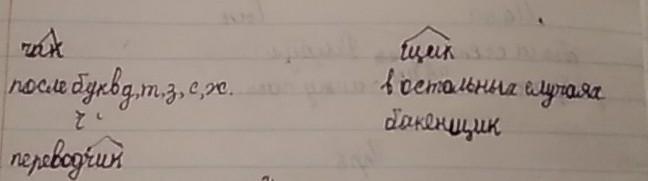 чик
щик
после букв д, т, з, с, ж.
в остальных случаях
бакенщик
переводчик